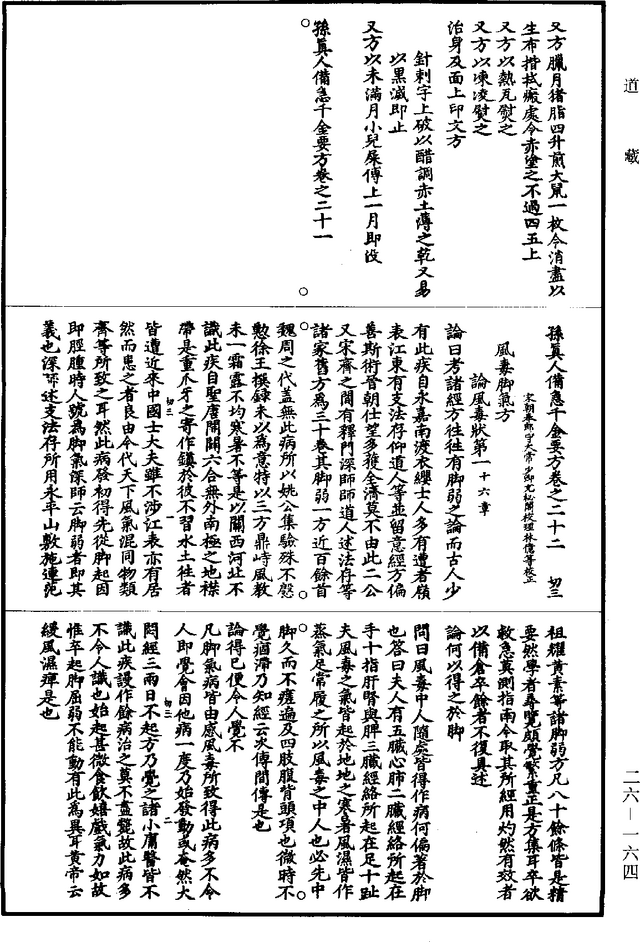 道藏
又方臘月猪脂四升煎大鼠一枚令消盡以
生布揩拭瘢處令赤塗之不過四五上
又方以熱瓦熨之
又方以凍凌熨之
治身及面上印文方
針刺字上破以醋調赤土薄之乾又易
以黑滅即止
又方以未滿月小兒屎傅上一月即没
孫眞人備急千金要方卷之二十一
孫眞人備急千金要方卷之二十二 㓛三
宋朝奉郎守太常少卿充秘閣校理林億等校正
風毒脚氣方
論風毒狀第一十六章
論曰考諸經方往往有脚弱之論而古人少
有此疾自永嘉南渡衣纓士人多有遭者嶺
表江東有支法存仰道人等並留意經方偏
善斯術晉朝仕望多獲全濟莫不由此二公
又宋齊之間有釋門深師師道人述法存等
諸家舊方爲三十卷其脚弱一方近百餘首
魏周之代蓋無此病所以姚公集驗殊不慇
懃徐王撰録未以爲意特以三方鼎峙風教
未一霜露不均寒暑不等是以關西河北不
識此疾自聖唐開闢六合無外南極之地襟
帶是重爪牙之寄作鎮於彼不習水土往者
皆遭近來中國士大夫雖不涉江表亦有居
然而患之者良由今代天下風氣混同物類
齊等所致之耳然此病發初得先從脚起因
即脛腫時人號爲脚氣深師云脚弱者即其
義也深師述支法存所用永平山敷施連范
祖耀黄素等諸脚弱方凡八十餘條皆是精
要然學者尋覽頗覺繁重正是方集耳卒欲
救急莫測指南今取其所經用灼然有效者
以備倉卒餘者不復具述
論何以得之於脚
問曰風毒中人隨處皆得作病何偏著於脚
也答曰夫人有五臟心肺二臟經絡所起在
手十指肝腎與脾三臟經絡所起在足十趾
夫風毒之氣皆起於地地之寒暑風濕皆作
蒸氣足常履之所以風毒之中人也必先中
脚久而不瘥遍及四肢腹背頭項也微時不
覺痼滯乃知經云次傳間傳是也
論得已便令人覺不
凡脚氣病皆由感風毒所致得此病多不令
人即覺會因他病一度乃始發動或奄然大
悶經三兩日不起方乃覺之諸小庸醫皆不
識此疾謾作餘病治之莫不盡斃故此病多
不令人識也始起甚微食飲嬉戲氣力如故
惟卒起脚屈弱不能動有此爲異耳黄帝云
緩風濕痺是也
二六—一六四